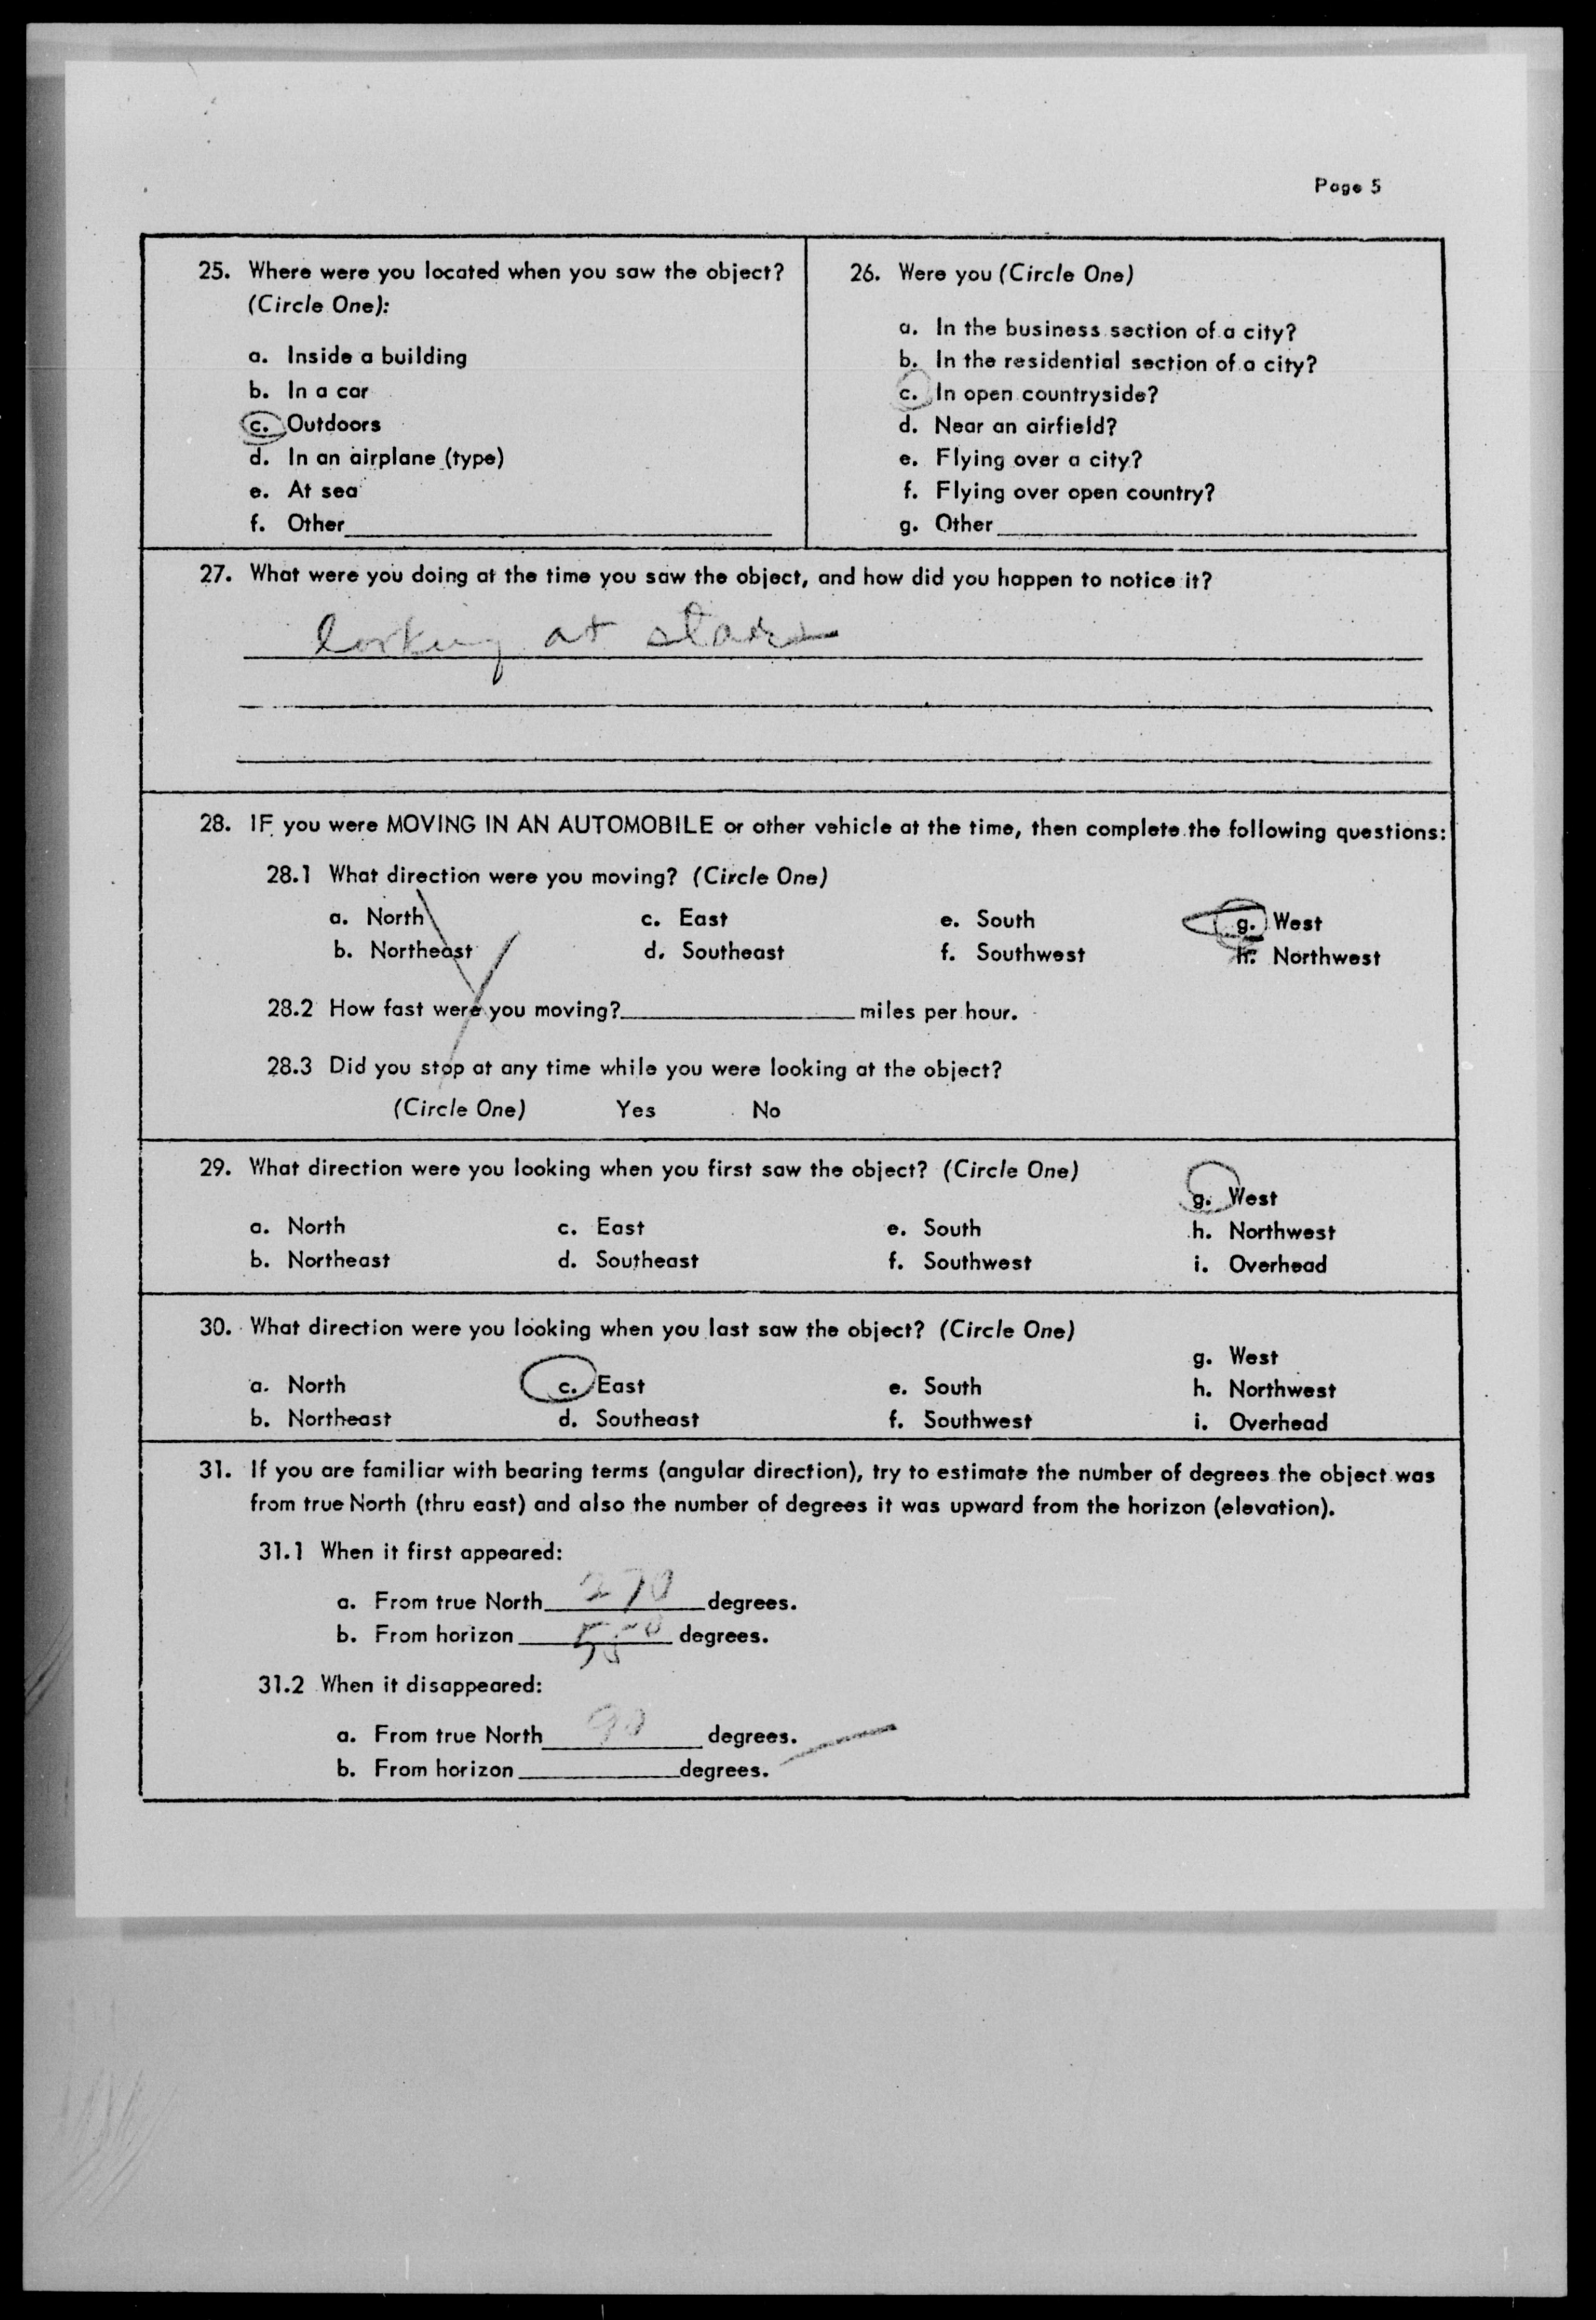 Page 5
25. Where were you located when you saw the object?
(Circle One):
a. Inside a building
b. In a car
c. Outdoors
d. In an airplane (type)
e. At sea
f. Other
26. Were you (Circle One)
a. In the business section of a city?
b. In the residential section of a city?
c. In open countryside?
d. Near an airfield?
e. Flying over a city?
f. Flying over open country?
g. Other
27. What were you doing at the time you saw the object, and how did you happen to notice it?
looking at stars
28. IF you were MOVING IN AN AUTOMOBILE or other vehicle at the time, then complete the following questions:
28.1 What direction were you moving? (Circle One)
a. North c. East e. South g. West
b. Northeast d. Southeast f. Southwest h. Northwest
28.2 How fast were you moving? miles per hour.
28.3 Did you stop at any time while you were looking at the object?
(Circle One) Yes No
29. What direction were you looking when you first saw the object? (Circle One)
g. West
a. North c. East e. South h. Northwest
b. Northeast d. Southeast f. Southwest i. Overhead
30. What direction were you looking when you last saw the object? (Circle One)
g. West
a. North c. East e. South h. Northwest
b. Northeast d. Southeast f. Southwest i. Overhead
31. If you are familiar with bearing terms (angular direction), try to estimate the number of degrees the object was
from true North (thru east) and also the number of degrees it was upward from the horizon (elevation).
31.1 When it first appeared:
a. From true North 270 degrees.
b. From horizon degrees.
31.2 When it disappeared:
a. From true North 90 degrees.
b. From horizon degrees.